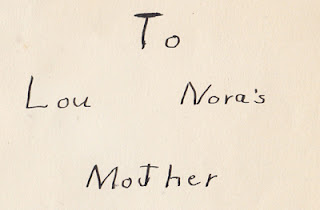 To
Lou Nora's
Mother